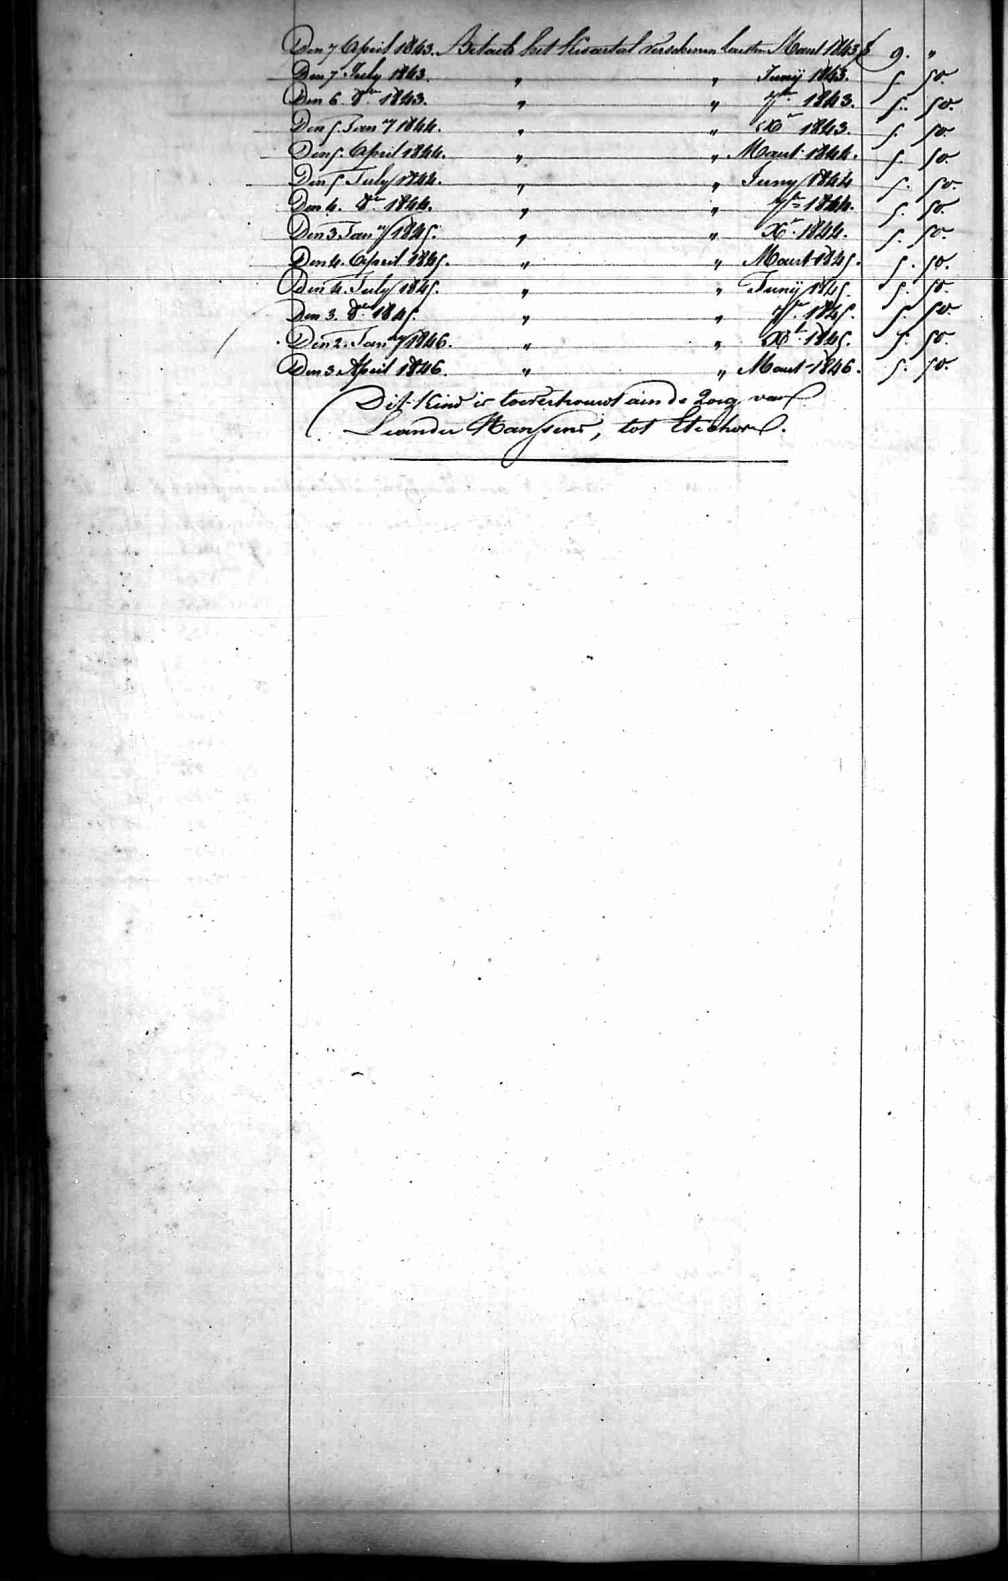 Den 7 April 1843. Betaelt het kwartael verschenen laetsten Maert 1843 f 9. "
Den 7 July 1843. " " Junij 1843. 5. 50.
Den 6. 8er 1843. " " 7er 1843. 5. 50.
Den 5. Jany 1844. " " Xr 1843. 5. 50
Den 5. April 1844. " " Maert 1844. 5. 50
Den 5 July 1844. " " Juny 1844 5. 50.
Den 4. 8er 1844. " " 7er 1844. 5. 50.
Den 3 Jany 1845. " " Xr 1844. 5. 50.
Den 4. April 1845. " " Maert 1845. 5. 50.
Den 4. July 1845. " " Junij 1845. 5. 50.
Den 3. 8er 1845. " " 7er 1845. 5. 50.
Den 2. Jany 1846. " " Xr 1845. 5. 50.
Den 3 April 1846. " " Maert 1846. 5. 50.
Dit Kind is toevertrouwt aen de Zorg van
Leander Hanssens, tot